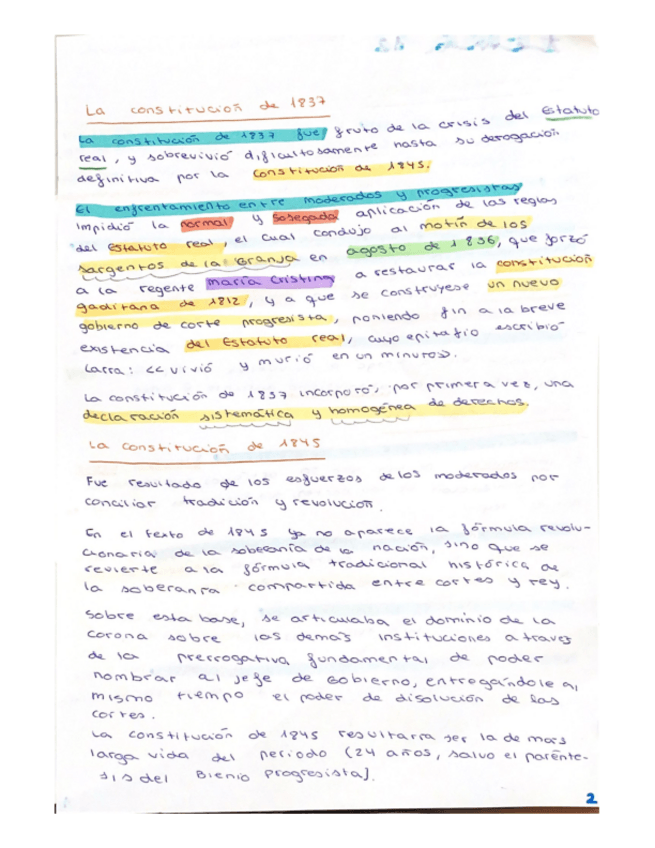 La constitución de 1837
La constitución de 1837 fue fruto de la crisis del Estatuto
real, y sobrevivió dificultosamente hasta su derogación
definitiva por la constitución de 1845.
El enfrentamiento entre moderados y progresistas
impidió la normal y sosegada aplicación de las reglas
del Estatuto real, el cual condujo al motín de los
sargentos de la Granja en agosto de 1836, que forzó
a la regente María Cristina a restaurar la constitución
gaditana de 1812, y a que se construyese un nuevo
gobierno de corte progresista, poniendo fin a la breve
existencia del Estatuto real, cuyo epitafio escribió
Larra: <<vivió y murió en un minuto>>.
La constitución de 1837 incorporó, por primera vez, una
declaración sistemática y homogénea de derechos.
La constitución de 1845
Fue resultado de los esfuerzos de los moderados por
conciliar tradición y revolución.
En el texto de 1845 ya no aparece la fórmula revolu-
cionaria de la soberanía de la nación, sino que se
revierte a la fórmula tradicional histórica de
la soberanía compartida entre cortes y rey.
Sobre esta base, se articulaba el dominio de la
corona sobre las demás instituciones a traves
de la prerrogativa fundamental de poder
nombrar al jefe de Gobierno, entregándole al
mismo tiempo el poder de disolución de las
cortes.
La constitución de 1845 resultaría ser la de más
larga vida del periodo (24 años, salvo el parénte-
sis del Bienio Progresista).
2